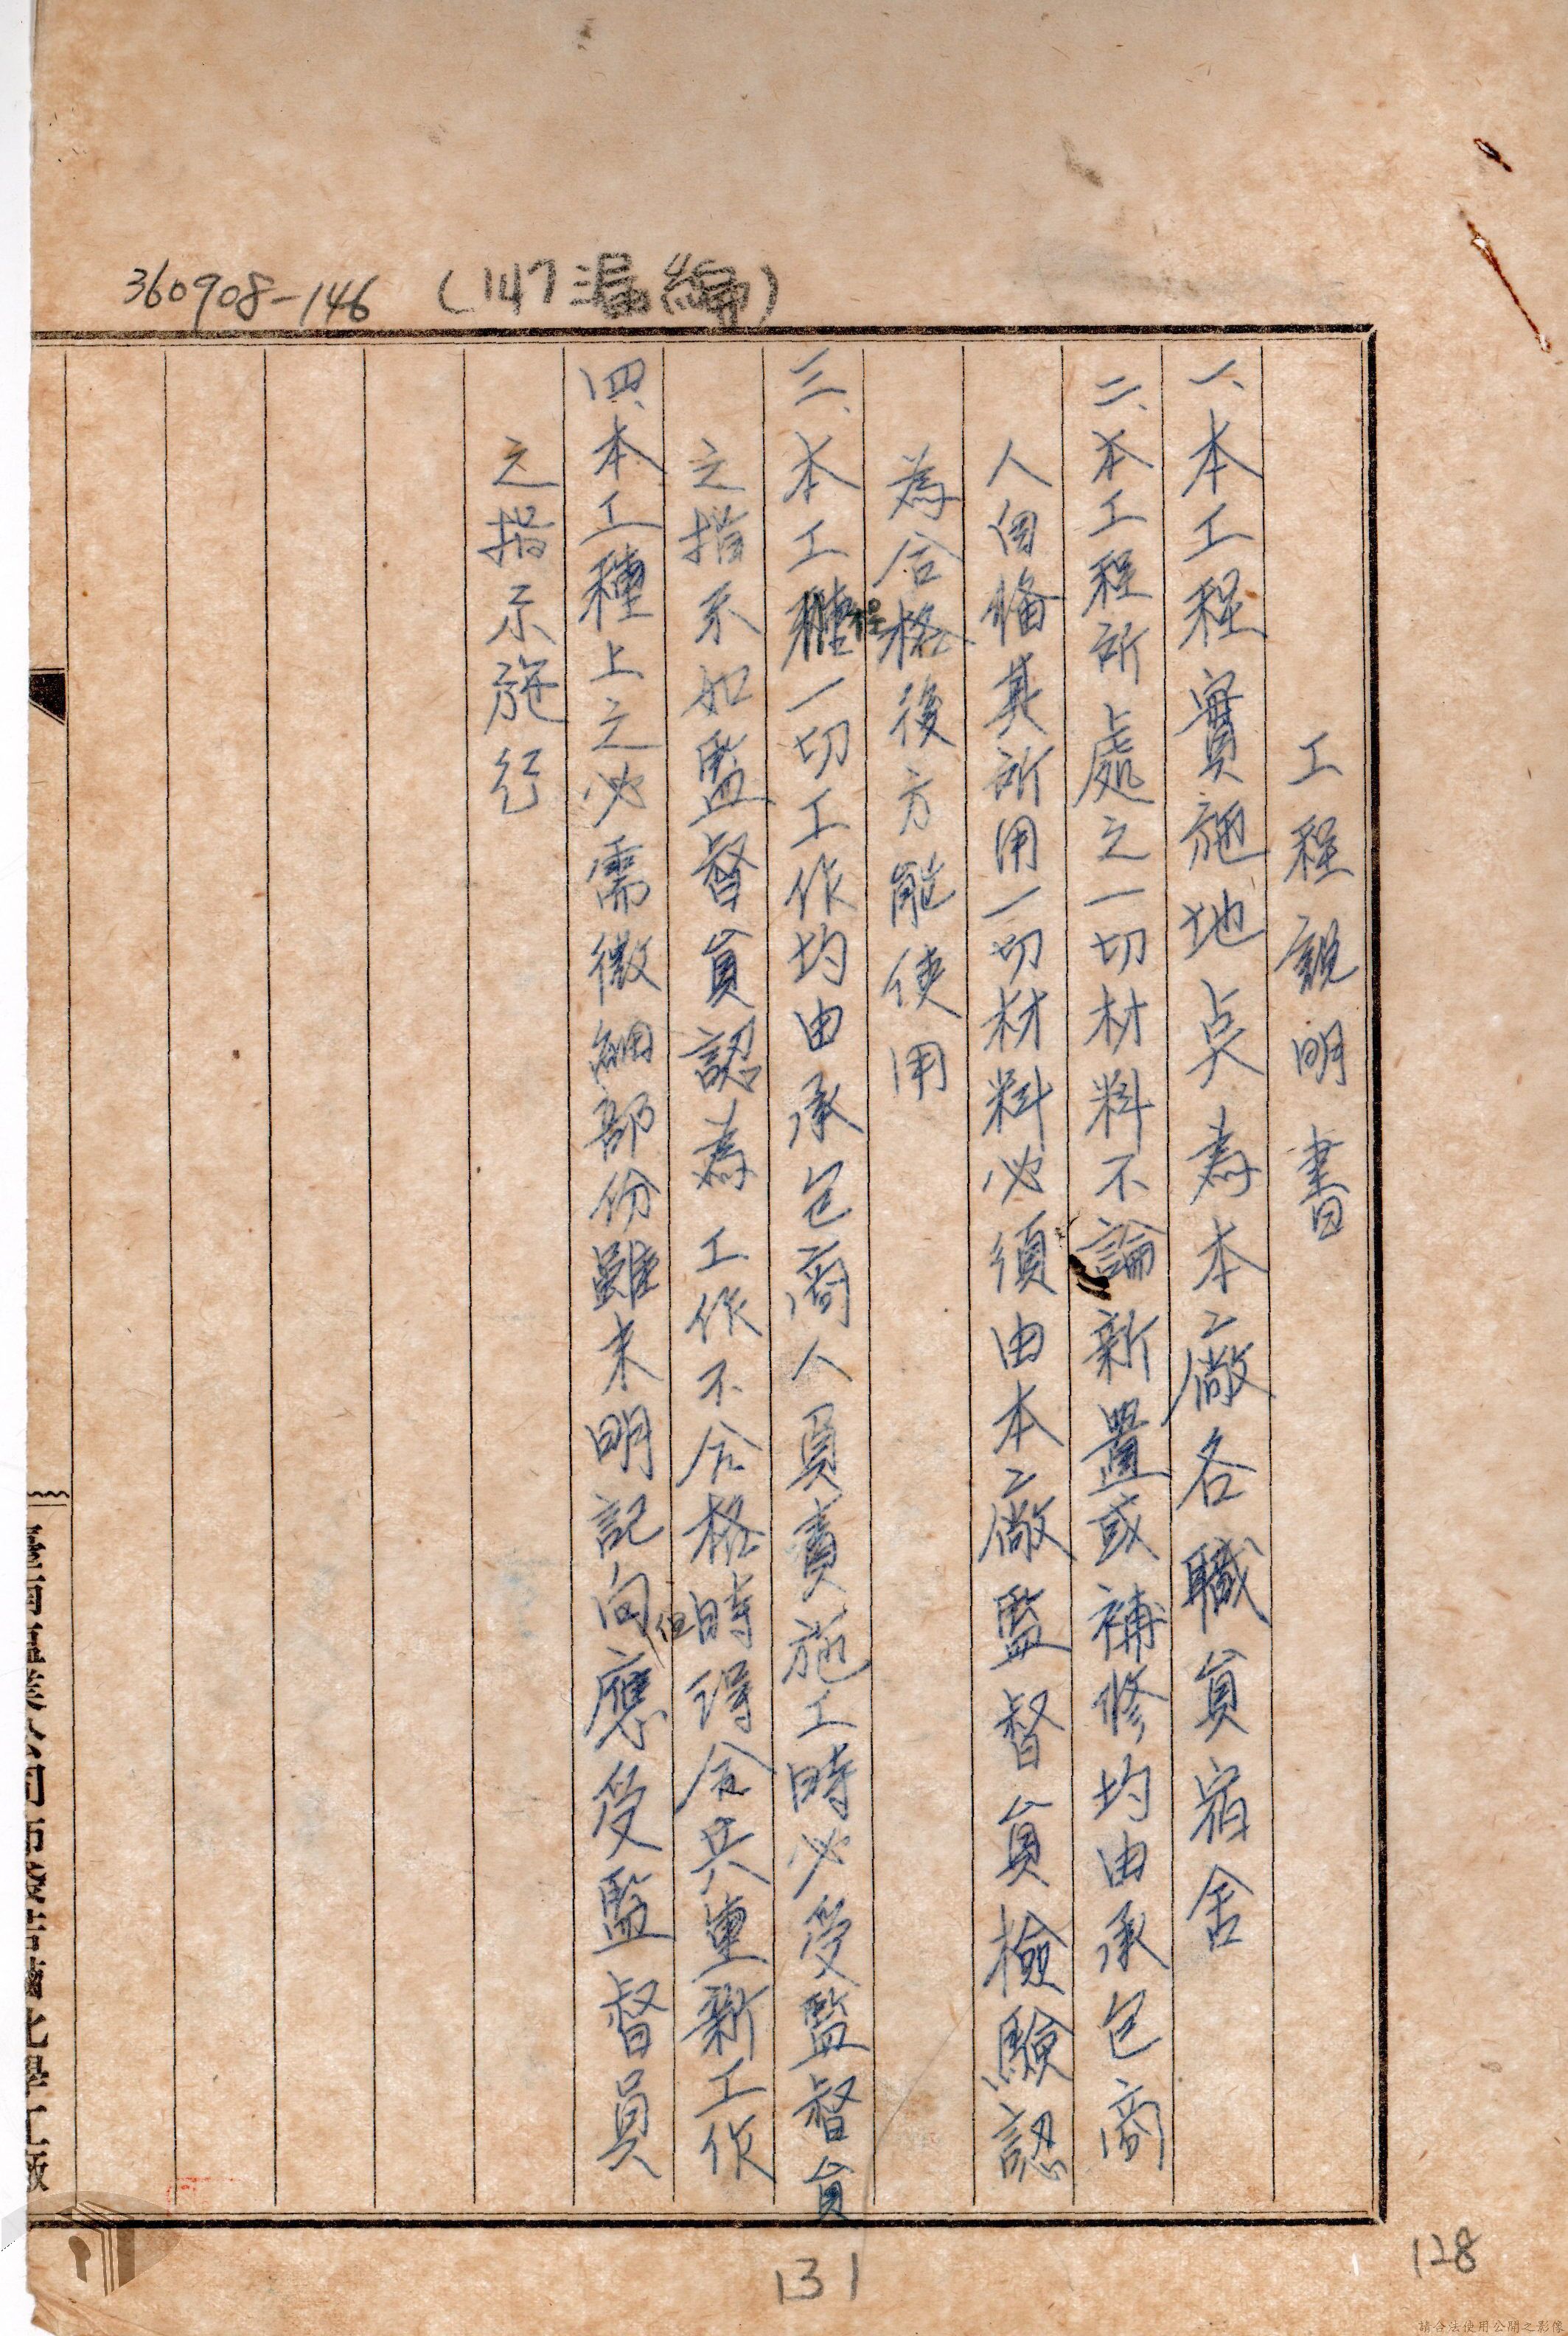 360908-146 (147漏編)
工程說明書
一、本工程實施地点為本工廠各職員宿舍
二、本工程所處之一切材料不論新置或補修均由承包商
人自備其所用一切材料必須由本工廠監督員檢驗認
為合格後方能使用
三、本工程一切工作均由承包商人負責施工時必受監督員
之指示如監督員認為工作不合格時得令其重新工作
四、本工種上之必需微細部份雖未明記但應受監督員
之指示施行
131
128
請合法使用公開之影像